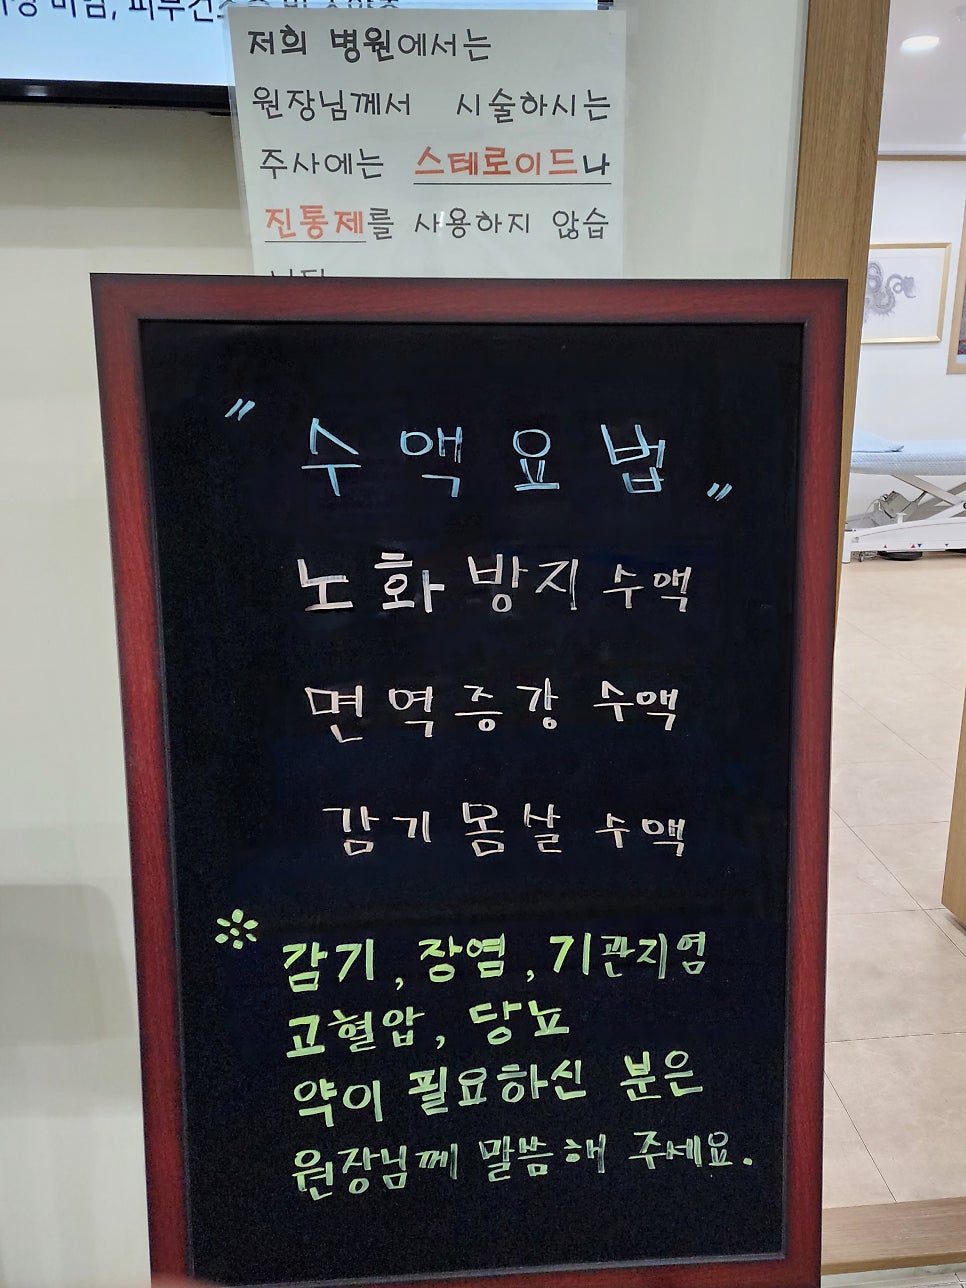 저희 병원에서는
원장님께서 시술하시는
주사에는 스테로이드나
진통제를 사용하지 않습
"수액요법"
노화방지 수액
면역증강 수액
감기몸살 수액
※ 감기, 장염, 기관지염
고혈압, 당뇨
약이 필요하신 분은
원장님께 말씀해 주세요.